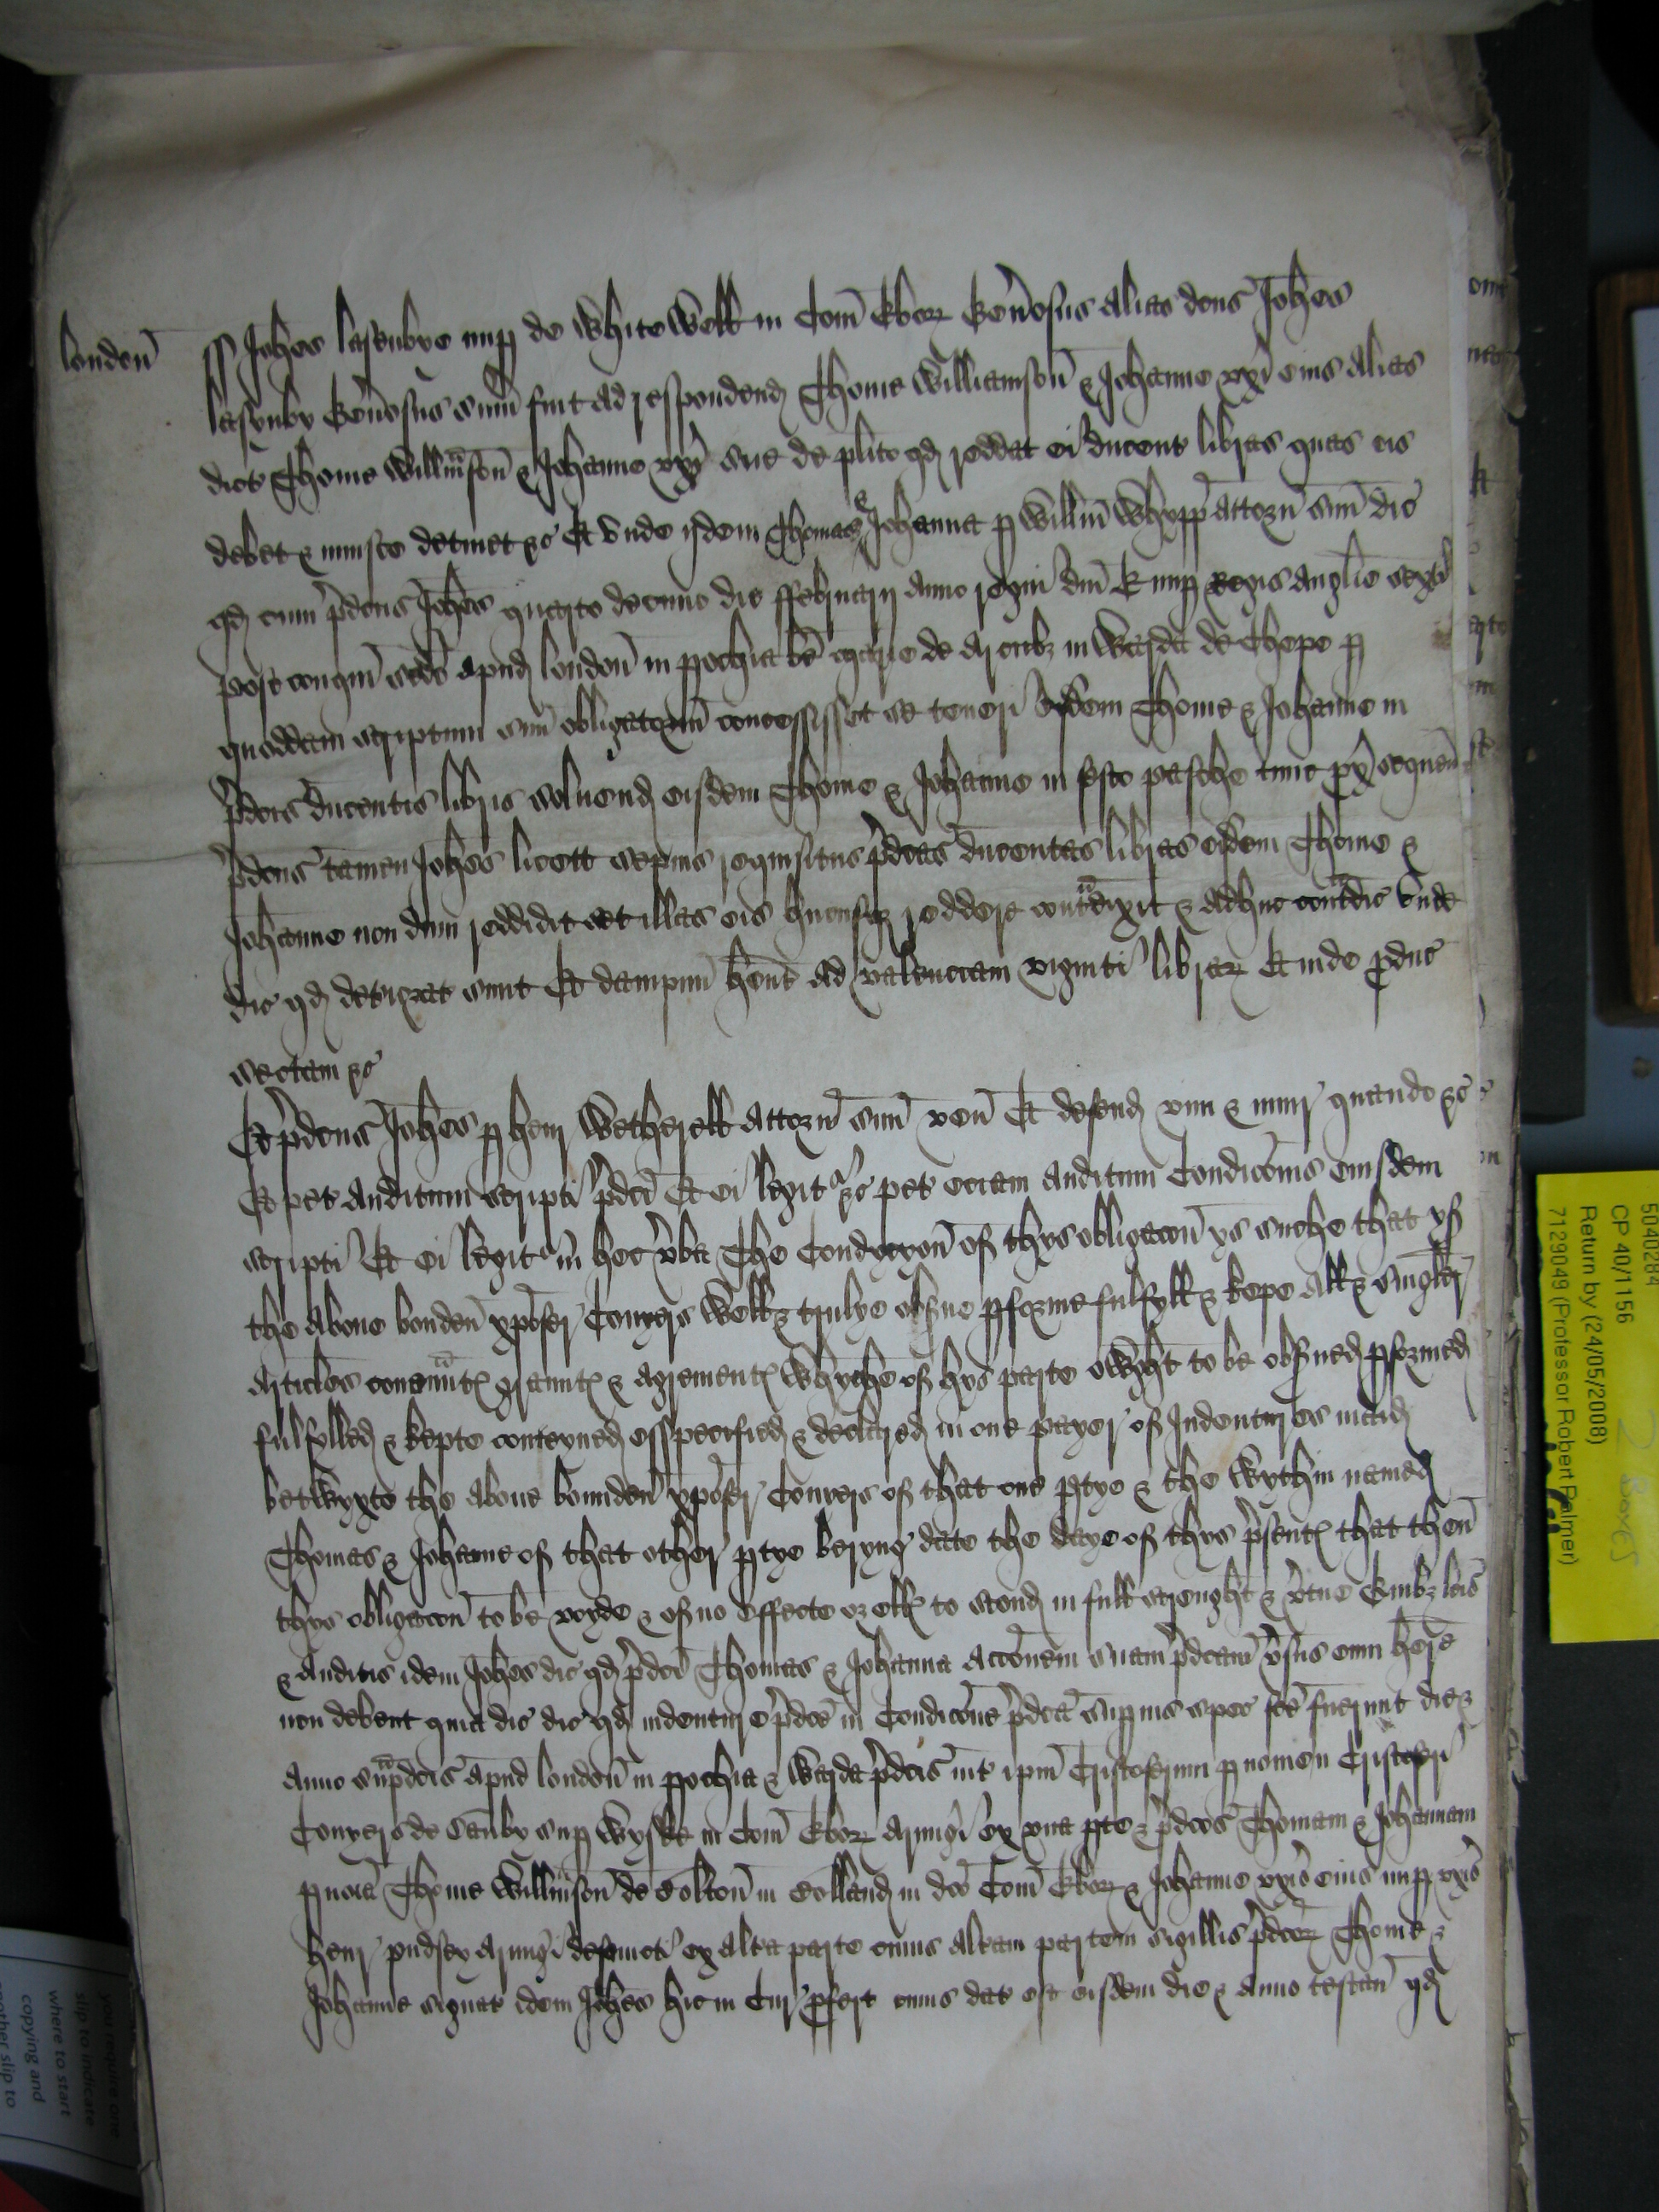 london ss Johes lasenbye nup de WhiteWell in Com Ebor Generosus alias dcus Johes
lasynby Generosus sum fuit ad respondend Thome Williamson & Johanne uxi eius alias
dict Thome Willmson & Johanne uxi sue de plito qd reddat ei ducent libras quas eis
debet & iniuste detinet &c Et unde iidem Thomas & Johanna p Willm Whypp attorn suu dic
qd cum pdcus Johes quarto decimo die ffebruarij anno regni dni E nup Regis Anglie sexti
post conqm scdo apud london in pochia be marie de Arcubz in Warda de Chepe p
quoddam scriptum suu obligatorm concessisset se teneri eisdem Thome & Johanne in
pdcis ducentis libris soluend eisdem Thome & Johanne in festo pasche tunc px sequen
pdcus tamen Johes licett sepius requisitus pdcas ducentas libras eisdem Thome &
Johanne non dum reddidit set illas eis hucusqz reddere contdixit & adhuc contdic unde
dic qd detiorat sunt Et dampnu hent ad valenciam viginti librar Et inde pduc
sectam &c
Et pdcus Johes p henr Wetherell attorn suu ven Et defend vim & iniur quando &c
Et pet auditum scripti pdci Et ei legit &c pet eciam auditum Condicois eiusdem
scripti Et ei legit in hec vba The Condycyon of thys obligacon ys suche that yf
the aboue bonden xpofer Conyers Well & trulye obsue pforme fulfyll & kepe all & singler
Articles conaunt graunt & agrement Whyche of hys parte oWght to be obsued pformed
fulfylled & kepte conteyned esspecified & declared in one payer of Indentures maid
betWyxte the aboue bounden xpofer Conyers of that one ptye & the Wythin named
Thomas & Johanne of that other ptye beryng date the daye of thys psent that then
thys obligacon to be voyde & of no effecte or ell to stond in full strenght & vtue Quibz lcis
& auditis idem Johes dic qd pdci Thomas & Johanna accoem suam pdcam vsus eum here
non debent quia dic dic qd indenture pdce in Condicoe pdca supius spec fce fuerunt die &
anno supdcis apud london in pochia & Warda pdcis int ipm Cristoferum p nomen Cristoferi
Conyers de Danby sup Wyske in Com Ebor Armigi ex una pte & pdcos Thomam & Johannam
p noia Thome Willmson de Bolton in Bolland in dco Com Ebor & Johanne uxis eius nup uxis
henr pudsey Armigi defuncti ex altra parte cuius altram partem sigillis pdcor Thome &
Johanne signat idem Johes hic in Cur pfert cuius dat est eisdem die & anno testan qd
5040284
CP 40/1156
Return by (24/05/2008)
7129049 (Professor Robert Palmer)
2 Boxes
you require one
slip to indicate
where to start
copying and
another slip to